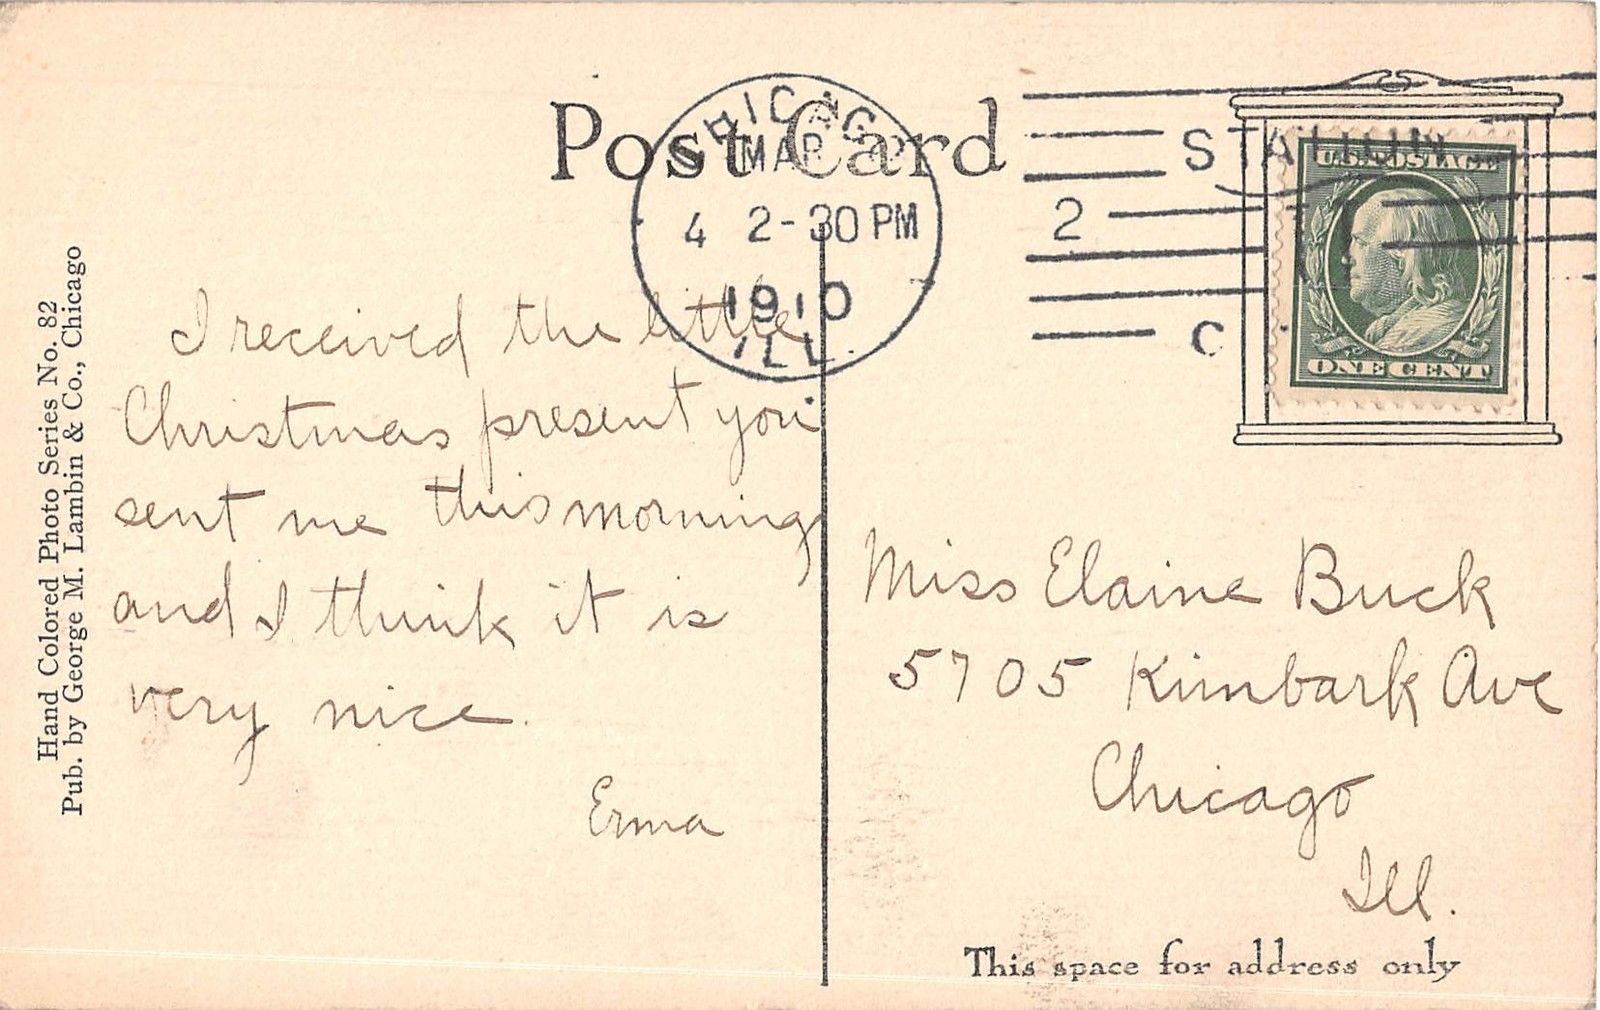 Post Card
CHICAGO
MAR
4 2-30 PM
1910
ILL.
STATION
2
C
U.S. POSTAGE
ONE CENT
Hand Colored Photo Series No. 82
Pub. by George M. Lambin & Co., Chicago
I received the little
Christmas present you
sent me this morning
and I think it is
very nice.
Erma
Miss Elaine Buck
5705 Kimbark Ave
Chicago
Ill.
This space for address only